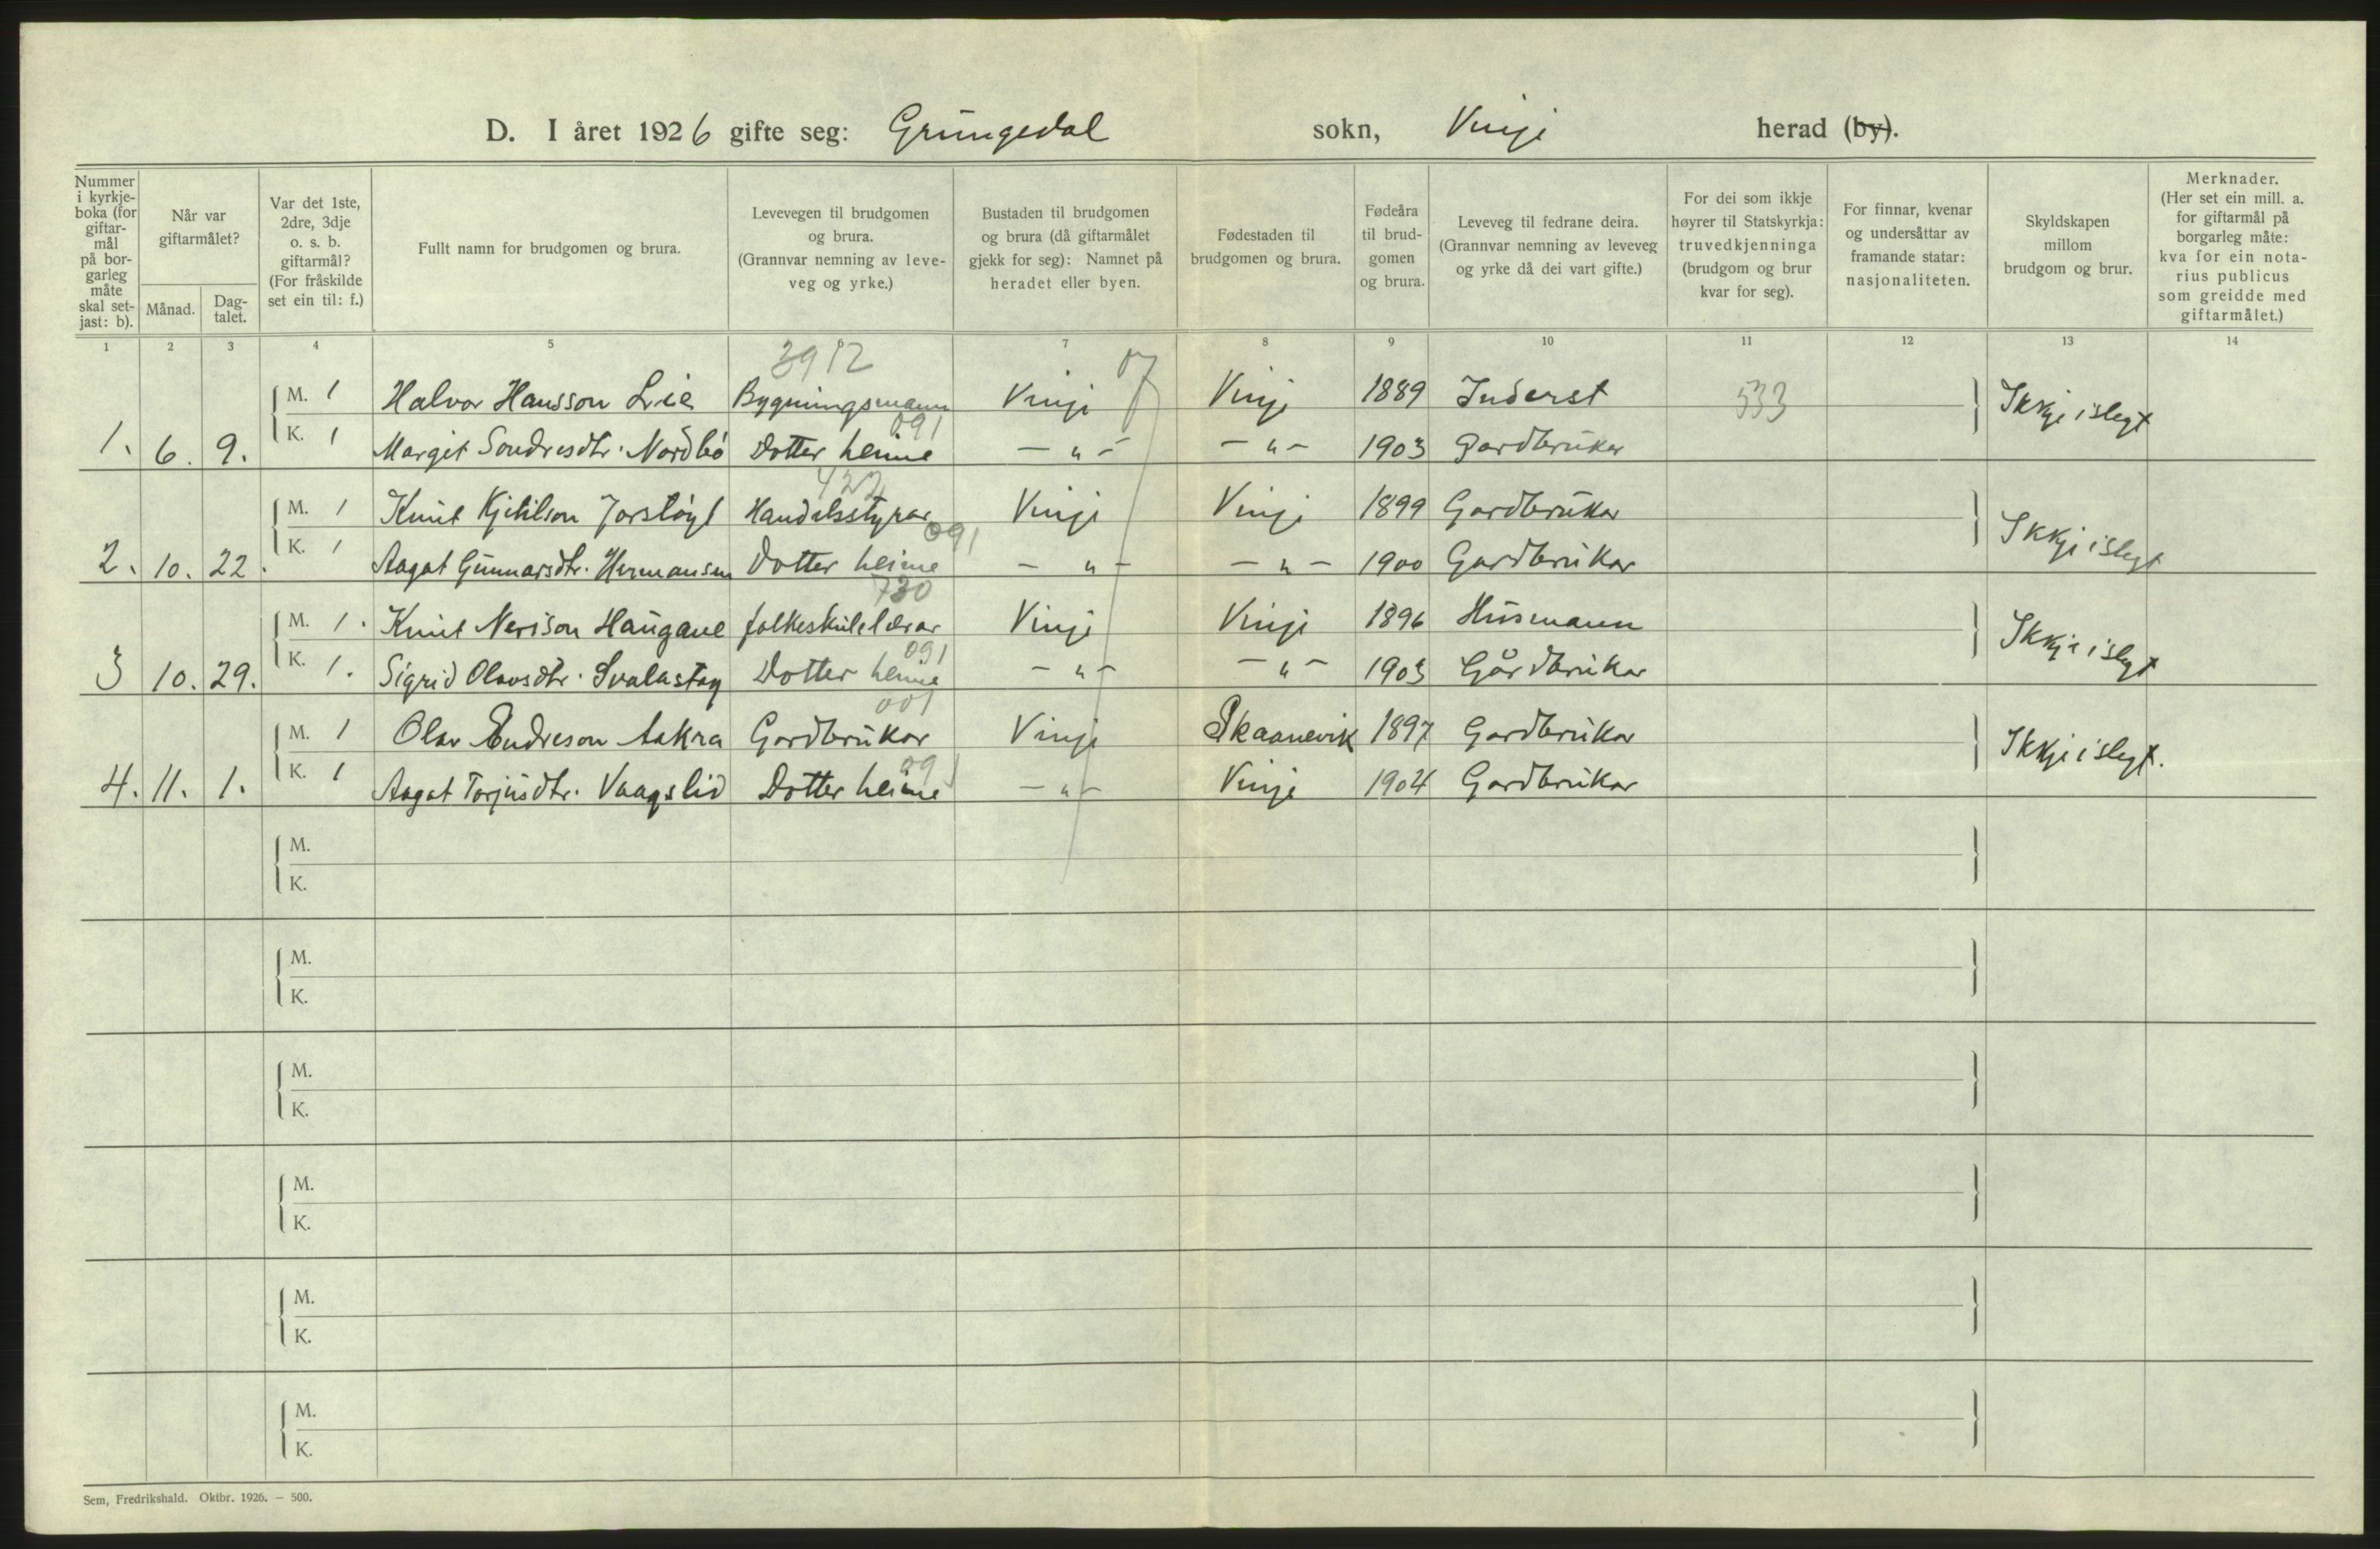 D. I året 1926 gifte seg: Grungedal sokn, Vinje herad (by).
Nummer i kyrkje-boka (for giftar-mål på bor-garleg måte skal set-jast: b).
Når var giftarmålet?
Månad.
Dag-talet.
Var det 1ste, 2dre, 3dje o. s. b. giftarmål? (For fråskilde set ein til: f.)
Fullt namn for brudgomen og brura.
Levevegen til brudgomen og brura. (Grannvar nemning av leve-veg og yrke.)
Bustaden til brudgomen og brura (då giftarmålet gjekk for seg): Namnet på heradet eller byen.
Fødestaden til brudgomen og brura.
Fødeåra til brud-gomen og brura.
Leveveg til fedrane deira. (Grannvar nemning av leveveg og yrke då dei vart gifte.)
For dei som ikkje høyrer til Statskyrkja: truvedkjenninga (brudgom og brur kvar for seg).
For finnar, kvenar og undersåttar av framande statar: nasjonaliteten.
Skyldskapen millom brudgom og brur.
Merknader. (Her set ein mill. a. for giftarmål på borgarleg måte: kva for ein nota-rius publicus som greidde med giftarmålet.)
1 2 3 4 5 6 7 8 9 10 11 12 13 14
3912 07
M. 1 Halvor Hansson Lie Bygningsmann Vinje Vinje 1889 Inderst 533 Ikkje i slegt
091
1. 6. 9. K. 1 Margit Sondresdtr. Nordbö Dotter heime - " - - " - 1903 Gardbrukar
422
M. 1 Knut Kjetilson Jorstöyl Handelsstyrar Vinje Vinje 1899 Gardbrukar Ikkje i slegt
091
2. 10. 22. K. 1 Aagot Gunnarsdtr. Hermansen Dotter heime - " - - " - 1900 Gardbrukar
730
M. 1. Knut Nerison Haugane folkeskulelærar Vinje Vinje 1896 Husmann Ikkje i slegt
091
3 10. 29. K. 1. Sigrid Olavsdtr. Svalastog Dotter heime - " - - " - 1903 Gårdbrukar
001
M. 1 Olav Endreson Aakra Gardbrukar Vinje Skaanevik 1897 Gardbrukar Ikkje i slegt.
091
4. 11. 1. K. 1 Aagot Torjusdtr. Vaagslid Dotter heime - " - Vinje 1904 Gardbrukar
M.
K.
M.
K.
M.
K.
M.
K.
M.
K.
M.
K.
Sem, Fredrikshald. Oktbr. 1926. — 500.